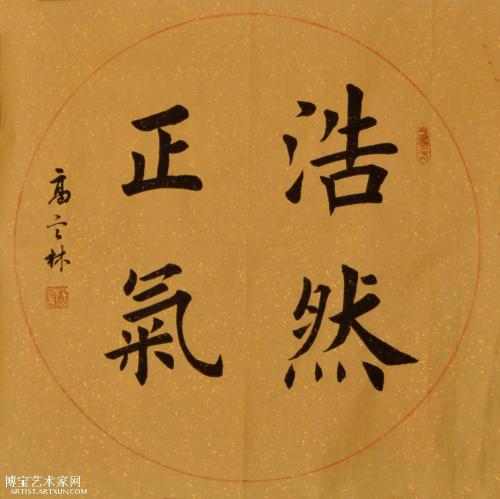 浩然
正氣
高言林
博宝艺术家网
ARTIST.ARTXUN.COM